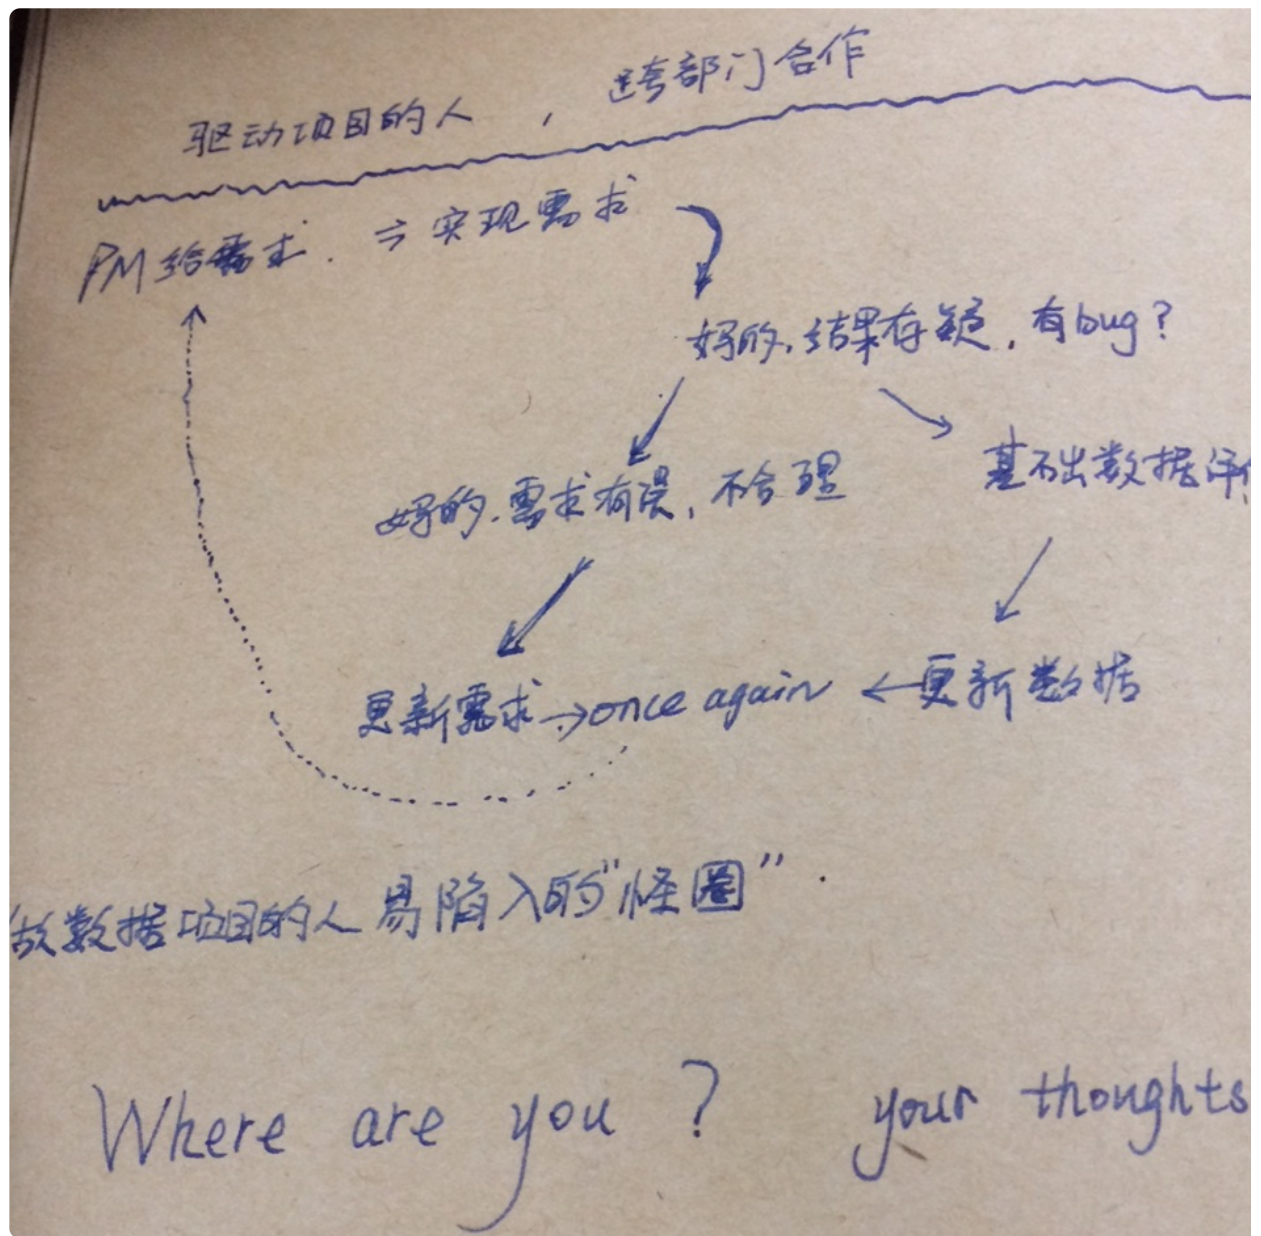 驱动项目的人，跨部门合作
PM给需求. ⇒ 实现需求
好的,结果存疑,有bug?
好的.需求有误,不合理 基础数据
更新需求→once again ←更新数据
做数据项目的人易陷入的"怪圈".
Where are you? your thoughts